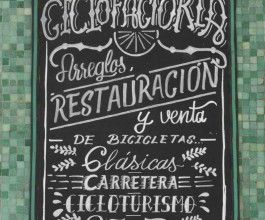 CICLOFACTORÍA
Arreglos,
RESTAURACIÓN
y venta
DE BICICLETAS
Clásicas
CARRETERA
CICLOTURISMO